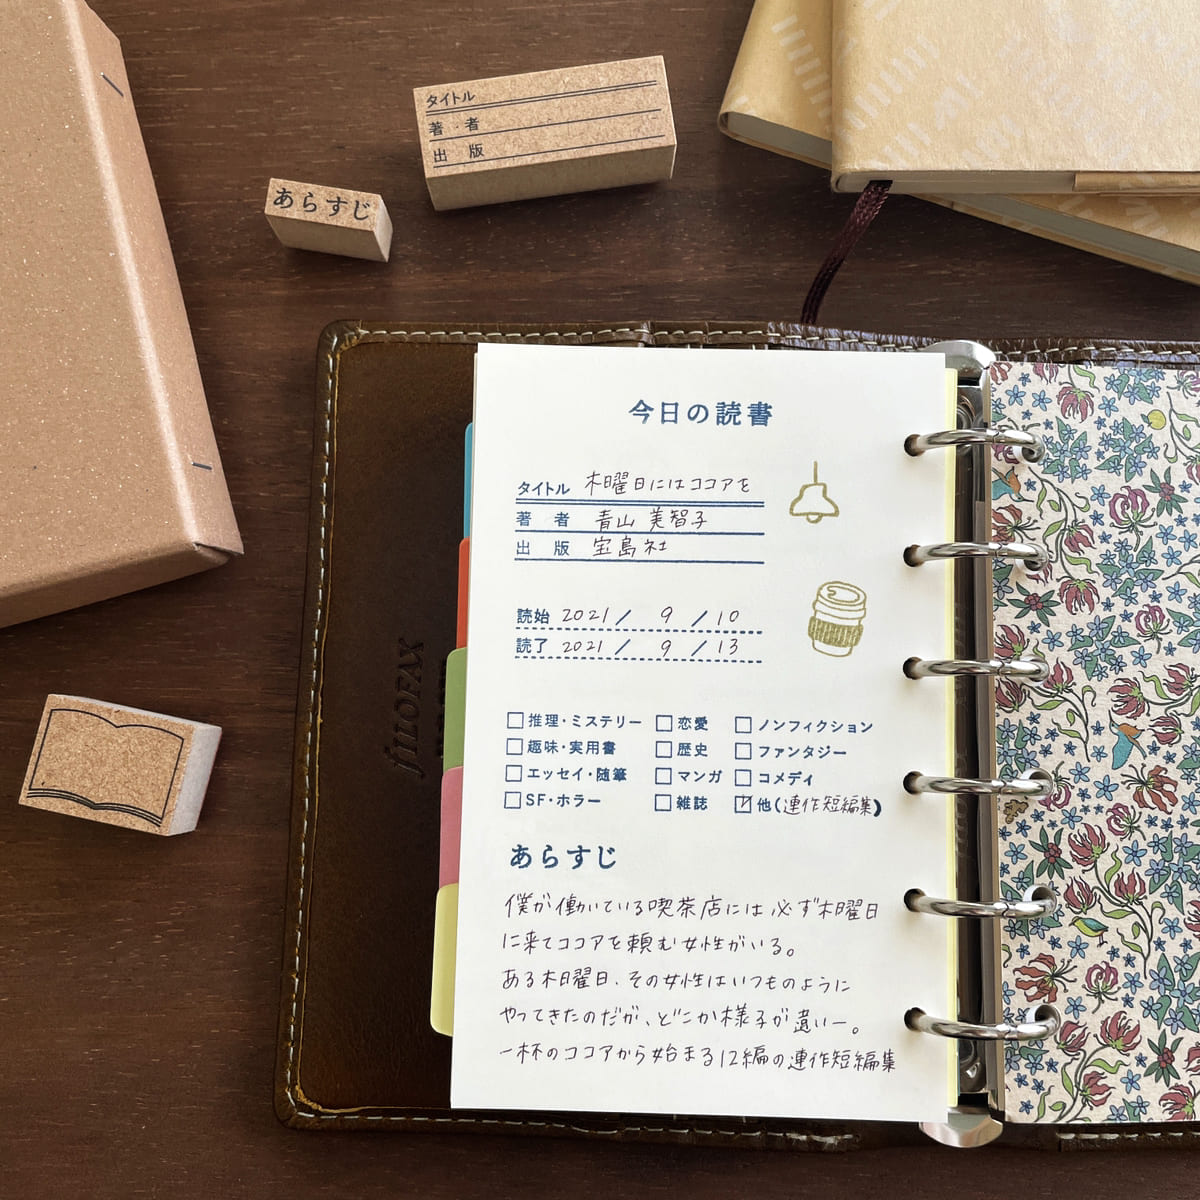 タイトル
著・者
出 版
あらすじ
FILOFAX
今日の読書
タイトル 木曜日にはココアを
著 者 青山 美智子
出 版 宝島社
読始 2021 / 9 / 10
読了 2021 / 9 / 13
推理・ミステリー 恋愛 ノンフィクション
趣味・実用書 歴史 ファンタジー
エッセイ・随筆 マンガ コメディ
SF・ホラー 雑誌 他(連作短編集)
あらすじ
僕が働いている喫茶店には必ず木曜日
に来てココアを頼む女性がいる。
ある木曜日、その女性はいつものように
やってきたのだが、どこか様子が違い―。
一杯のココアから始まる12編の連作短編集